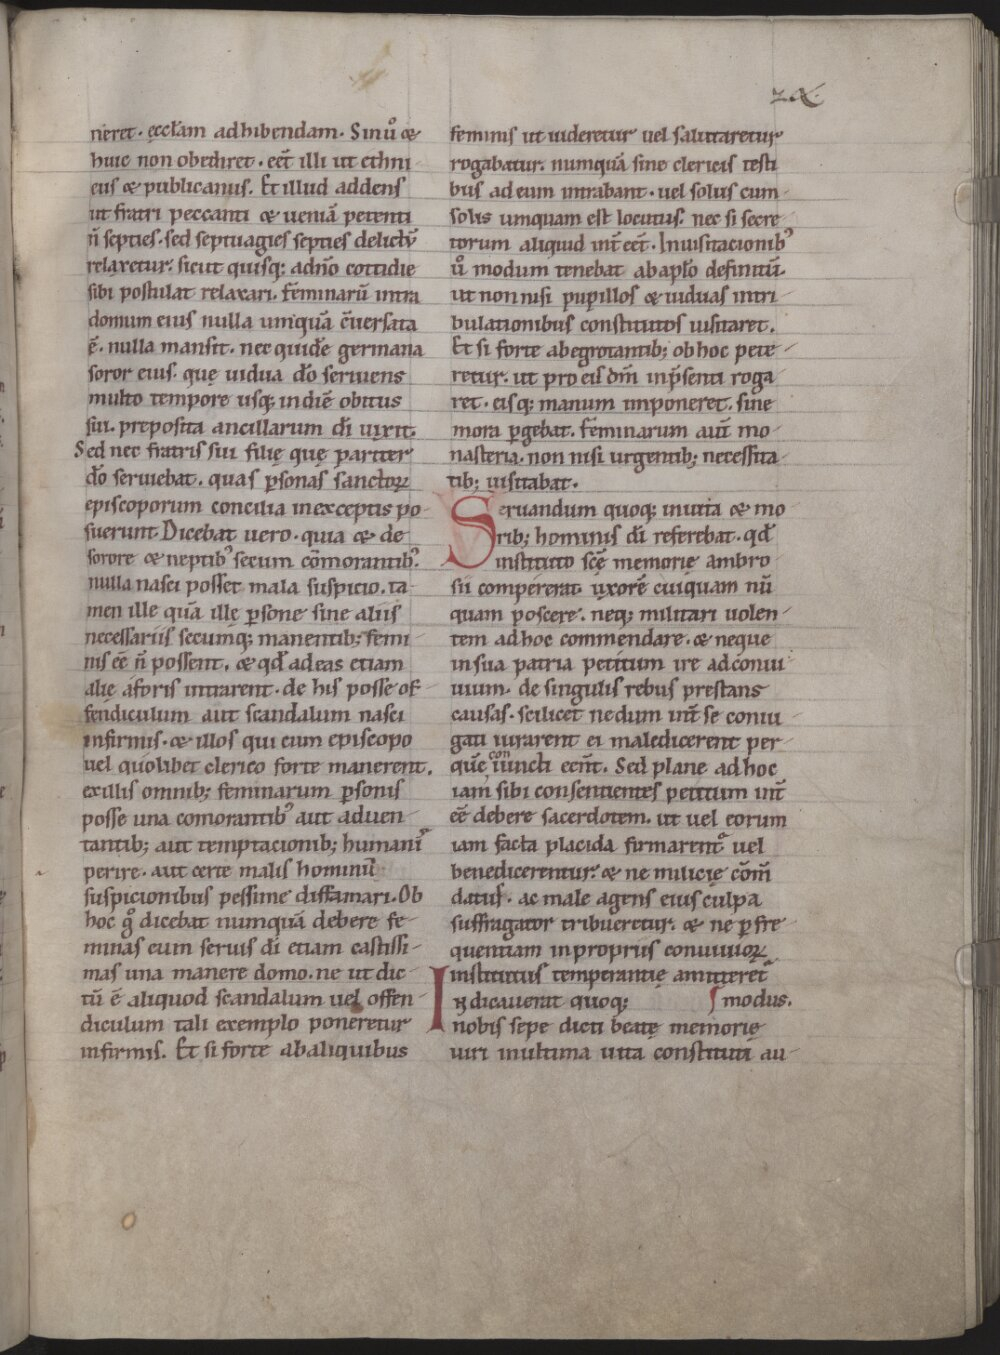 neret. ęccl̄am adhibendam. Sin uͦ &
huic non obediret. eēt illi ut ethni-
cus & publicanus. Et illud addens
ut fratri peccanti & ueniā petenti
n̄ septies. sed septuagies septies delictū
relaxetur. sicut quisq; adn̄o cottidie
sibi postulat relaxari. Feminarū intra
domum eius nulla umquā c̄uersata
ē. nulla mansit. nec quidē germana
soror eius. quę uidua d̄o seruiens
multo tempore usq; indiē obitus
sui. preposita ancillarum d̄i uixit.
Sed nec fratris sui filię quę pariter
d̄o seruiebat. quas p̱sonas sanctoꝝ
episcoporum concilia inexceptis po-
suerunt. Dicebat uero. quia & de
sorore & neptibꝰ secum cōmorantibꝰ.
nulla nasci posset mala suspicio. ta-
men ille quā illę p̱sone sine aliis
necessariis secumq; manentib; femi-
nis eē n̄ possent. & qđ ad eas etiam
alię aforis intrarent. de his posse of-
fendiculum aut scandalum nasci
infirmis. & illos qui cum episcopo
uel quolibet clerico forte manerent.
exillis omnib; feminarum p̱sonis
posse una comorantibꝰ aut aduen-
tantib; aut temptacionib; humanis
perire. aut certe malis hominū
suspicionibus pessime diffamari. Ob
hoc gͦ dicebat numquā debere fe-
minas cum seruis di etiam castissi-
mas una manere domo. ne ut dic-
tū ē aliquod scandalum uel offen-
diculum tali exemplo poneretur
infirmis. Et si forte abaliquibus
feminis ut uideretur uel salutaretur
rogabatur. numquā sine clericis testi
bus ad eum intrabant. uel solus cum-
solis umquam est locutus. nec si secre-
torum aliquid int̄ eēt. Inuisitacionibꝰ
uͦ modum tenebat ab ap̄lo definitū.
ut non nisi pupillos & uiduas intri-
bulationibus constitutos uisitaret.
Et si forte abegrotantib; ob hoc pete-
retur. ut pro eis dm̄ inp̄senti roga
ret. eisq; manum imponeret. sine
mora p̱gebat. Feminarum aut̄ mo-
nasteria. non nisi urgentib; necessita-
tib; uisitabat.
Seruandum quoq; inuita & mo
rib; hominis di referebat. qđ
instituto scę memorię ambro
sii compererat. uxorē cuiquam nū
quam poscere. neq; militari uolen-
tem ad hoc commendare. & neque
in sua patria petitum ire adconui-
uium. de singulis rebus prestans
causas. scilicet nedum int̄ se coniu-
gati iurarent ei maledicerent per
quē coniuncti eēnt. Sed plane ad hoc
iam sibi consentientes petitum int̄
eē debere sacerdotem. ut uel eorum
iam facta placida firmarentͣ uel
benedicerentur & ne milicię cōm̄
datus. ac male agens eius culpa
suffragator tribueretur. & ne p̱ fre-
quentiam inpropriis conuiuioꝝ
institutus temperantię amitteretͣ
Indicauerat quoq; modus.
nobis sepe dicti beatę memorię
uiri in ultima uita constituti au-